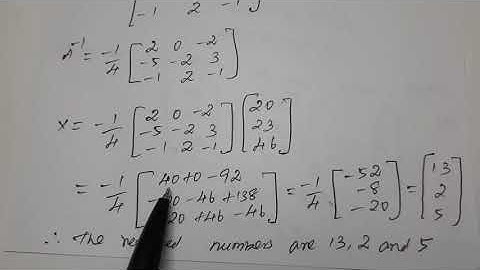 -1 2 -1
A⁻¹ = -1/4 [2 0 -2
-5 -2 3
-1 2 -1]
X = -1/4 [2 0 -2
-5 -2 3
-1 2 -1] [20
23
46]
= -1/4 [40+0-92
-46+138
20+46-46] = -1/4 [-52
-8
-20] = [13
2
5]
∴ The numbers are 13, 2 and 5